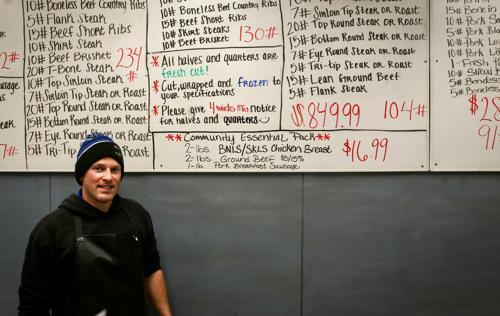 2#
7#
10# Boneless Beef Country Ribs
5# Flank Steak
15# Beef Short Ribs
10# Skirt Steak
10# Beef Brisket
20# T-Bone Steak
234 #
10# Top Sirloin Steak
7# Sirloin Tip Steak or Roast
10# Top Round Steak or Roast
15# Bottom Round Steak or Roast
7# Eye Round Steak or Roast
5# Tri-Tip
10# Boneless Beef Country Ribs
15# Beef Short Ribs
10# Skirt Steaks
10# Beef Brisket
130#
* All halves and quarters are
fresh cut!
* Cut, wrapped and frozen to
your specifications
* Please give 4 weeks notice
for halves and quarters
7# Sirloin Tip Steak or Roast
20# Top Round Steak or Roast
15# Bottom Round Steak or Roast
7# Eye Round Steak or Roast
5# Tri-tip Steak or Roast
15# Lean Ground Beef
5# Flank Steak
$849.99 104#
** Community Essential Pack **
2-lbs. BNLS/SKLS Chicken Breast
2-lbs. Ground Beef 85/15%
1-lb. Pork Breakfast Sausage
$16.99